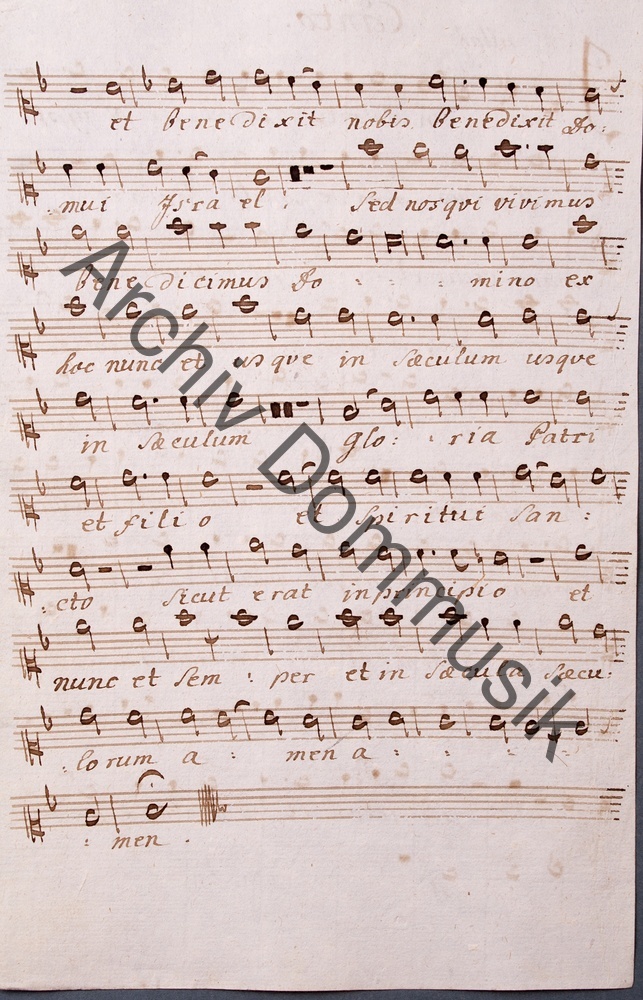 et benedixit nobis benedixit Do:
mui Israel . Sed nos qui vivimus
benedicimus Do : : : mino ex
hoc nunc et usque in sæculum usque
in sæculum glo: : ria Patri
et filio et Spiritui San :
: cto sicut erat in principio et
nunc et Sem : per et in sæcula sæcu:
: lorum a : men a : : : : :
: men .
Archiv Dommusik